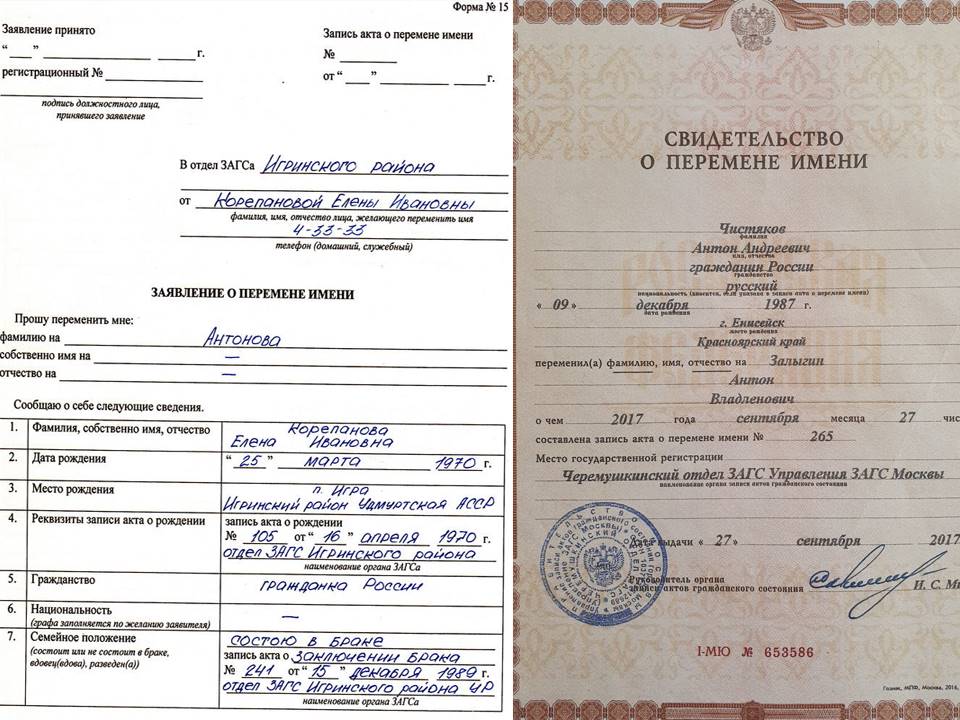 Форма № 15
Заявление принято
“ ___ ” ____________ ______ г.
регистрационный № ____________
подпись должностного лица,
принявшего заявление
Запись акта о перемене имени
№ ________
от “ ___ ” _________ _____ г.
В отдел ЗАГСа Игринского района
от Корепановой Елены Ивановны
фамилия, имя, отчество лица, желающего переменить имя
4-33-33
телефон (домашний, служебный)
ЗАЯВЛЕНИЕ О ПЕРЕМЕНЕ ИМЕНИ
Прошу переменить мне:
фамилию на Антонова
собственно имя на —
отчество на —
Сообщаю о себе следующие сведения.
1. Фамилия, собственно имя, отчество Корепанова
Елена Ивановна
2. Дата рождения “ 25 ” марта 1970 г.
3. Место рождения п. Игра
Игринский район Удмуртская АССР
4. Реквизиты записи акта о рождении запись акта о рождении
№ 105 от “ 16 ” апреля 1970 г.
отдел ЗАГС Игринского района
наименование органа ЗАГСа
5. Гражданство гражданка России
6. Национальность —
(графа заполняется по желанию заявителя)
7. Семейное положение состою в браке
(состоит или не состоит в браке,
вдовец(вдова), разведен(а))
запись акта о заключении брака
№ 241 от “ 15 ” декабря 1989 г.
отдел ЗАГС Игринского района УР
наименование органа ЗАГСа
СВИДЕТЕЛЬСТВО
О ПЕРЕМЕНЕ ИМЕНИ
Чистяков
фамилия
Антон Андреевич
имя, отчество
гражданин России
гражданство
русский
национальность (вносится, если указана в записи акта о перемене имени)
« 09 » декабря 1987 г.
дата рождения
г. Енисейск
место рождения
Красноярский край
переменил(а) фамилию, имя, отчество на Залыгин
Антон
Владленович
о чем 2017 года сентября месяца 27 чис
составлена запись акта о перемене имени № 265
Место государственной регистрации
Черемушкинский отдел ЗАГС Управления ЗАГС Москвы
наименование органа записи актов гражданского состояния
Дата выдачи « 27 » сентября 2017
Руководитель органа
записи актов гражданского состояния И. С. Ми
I-МЮ № 653586
Гознак, МПФ, Москва, 2016,